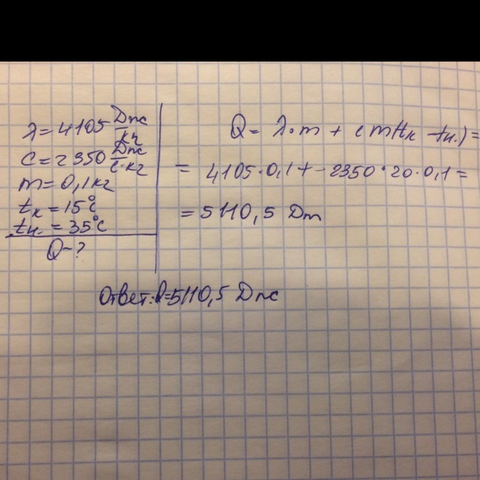 λ = 4105 Дж/кг
c = 2350 Дж/°C·кг
m = 0,1 кг
tк = 15°C
tн. = 35°C
Q - ?
Q = λ·m + cm(tк - tн.) =
= 4105·0,1 + -2350·20·0,1 =
= 5110,5 Дж
Ответ: Q=5110,5 Дж